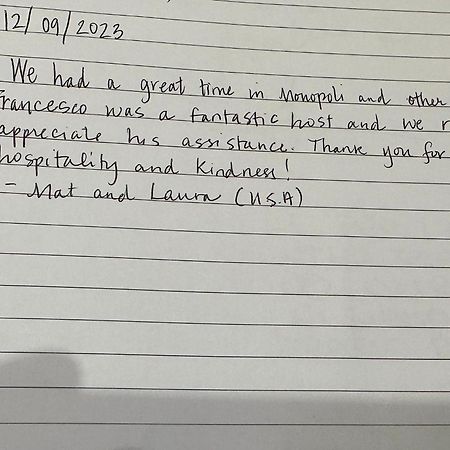 12/09/2023
We had a great time in Monopoli and other
Francesco was a fantastic host and we r
appreciate his assistance. Thank you for
hospitality and kindness!
- Mat and Laura (U.S.A)